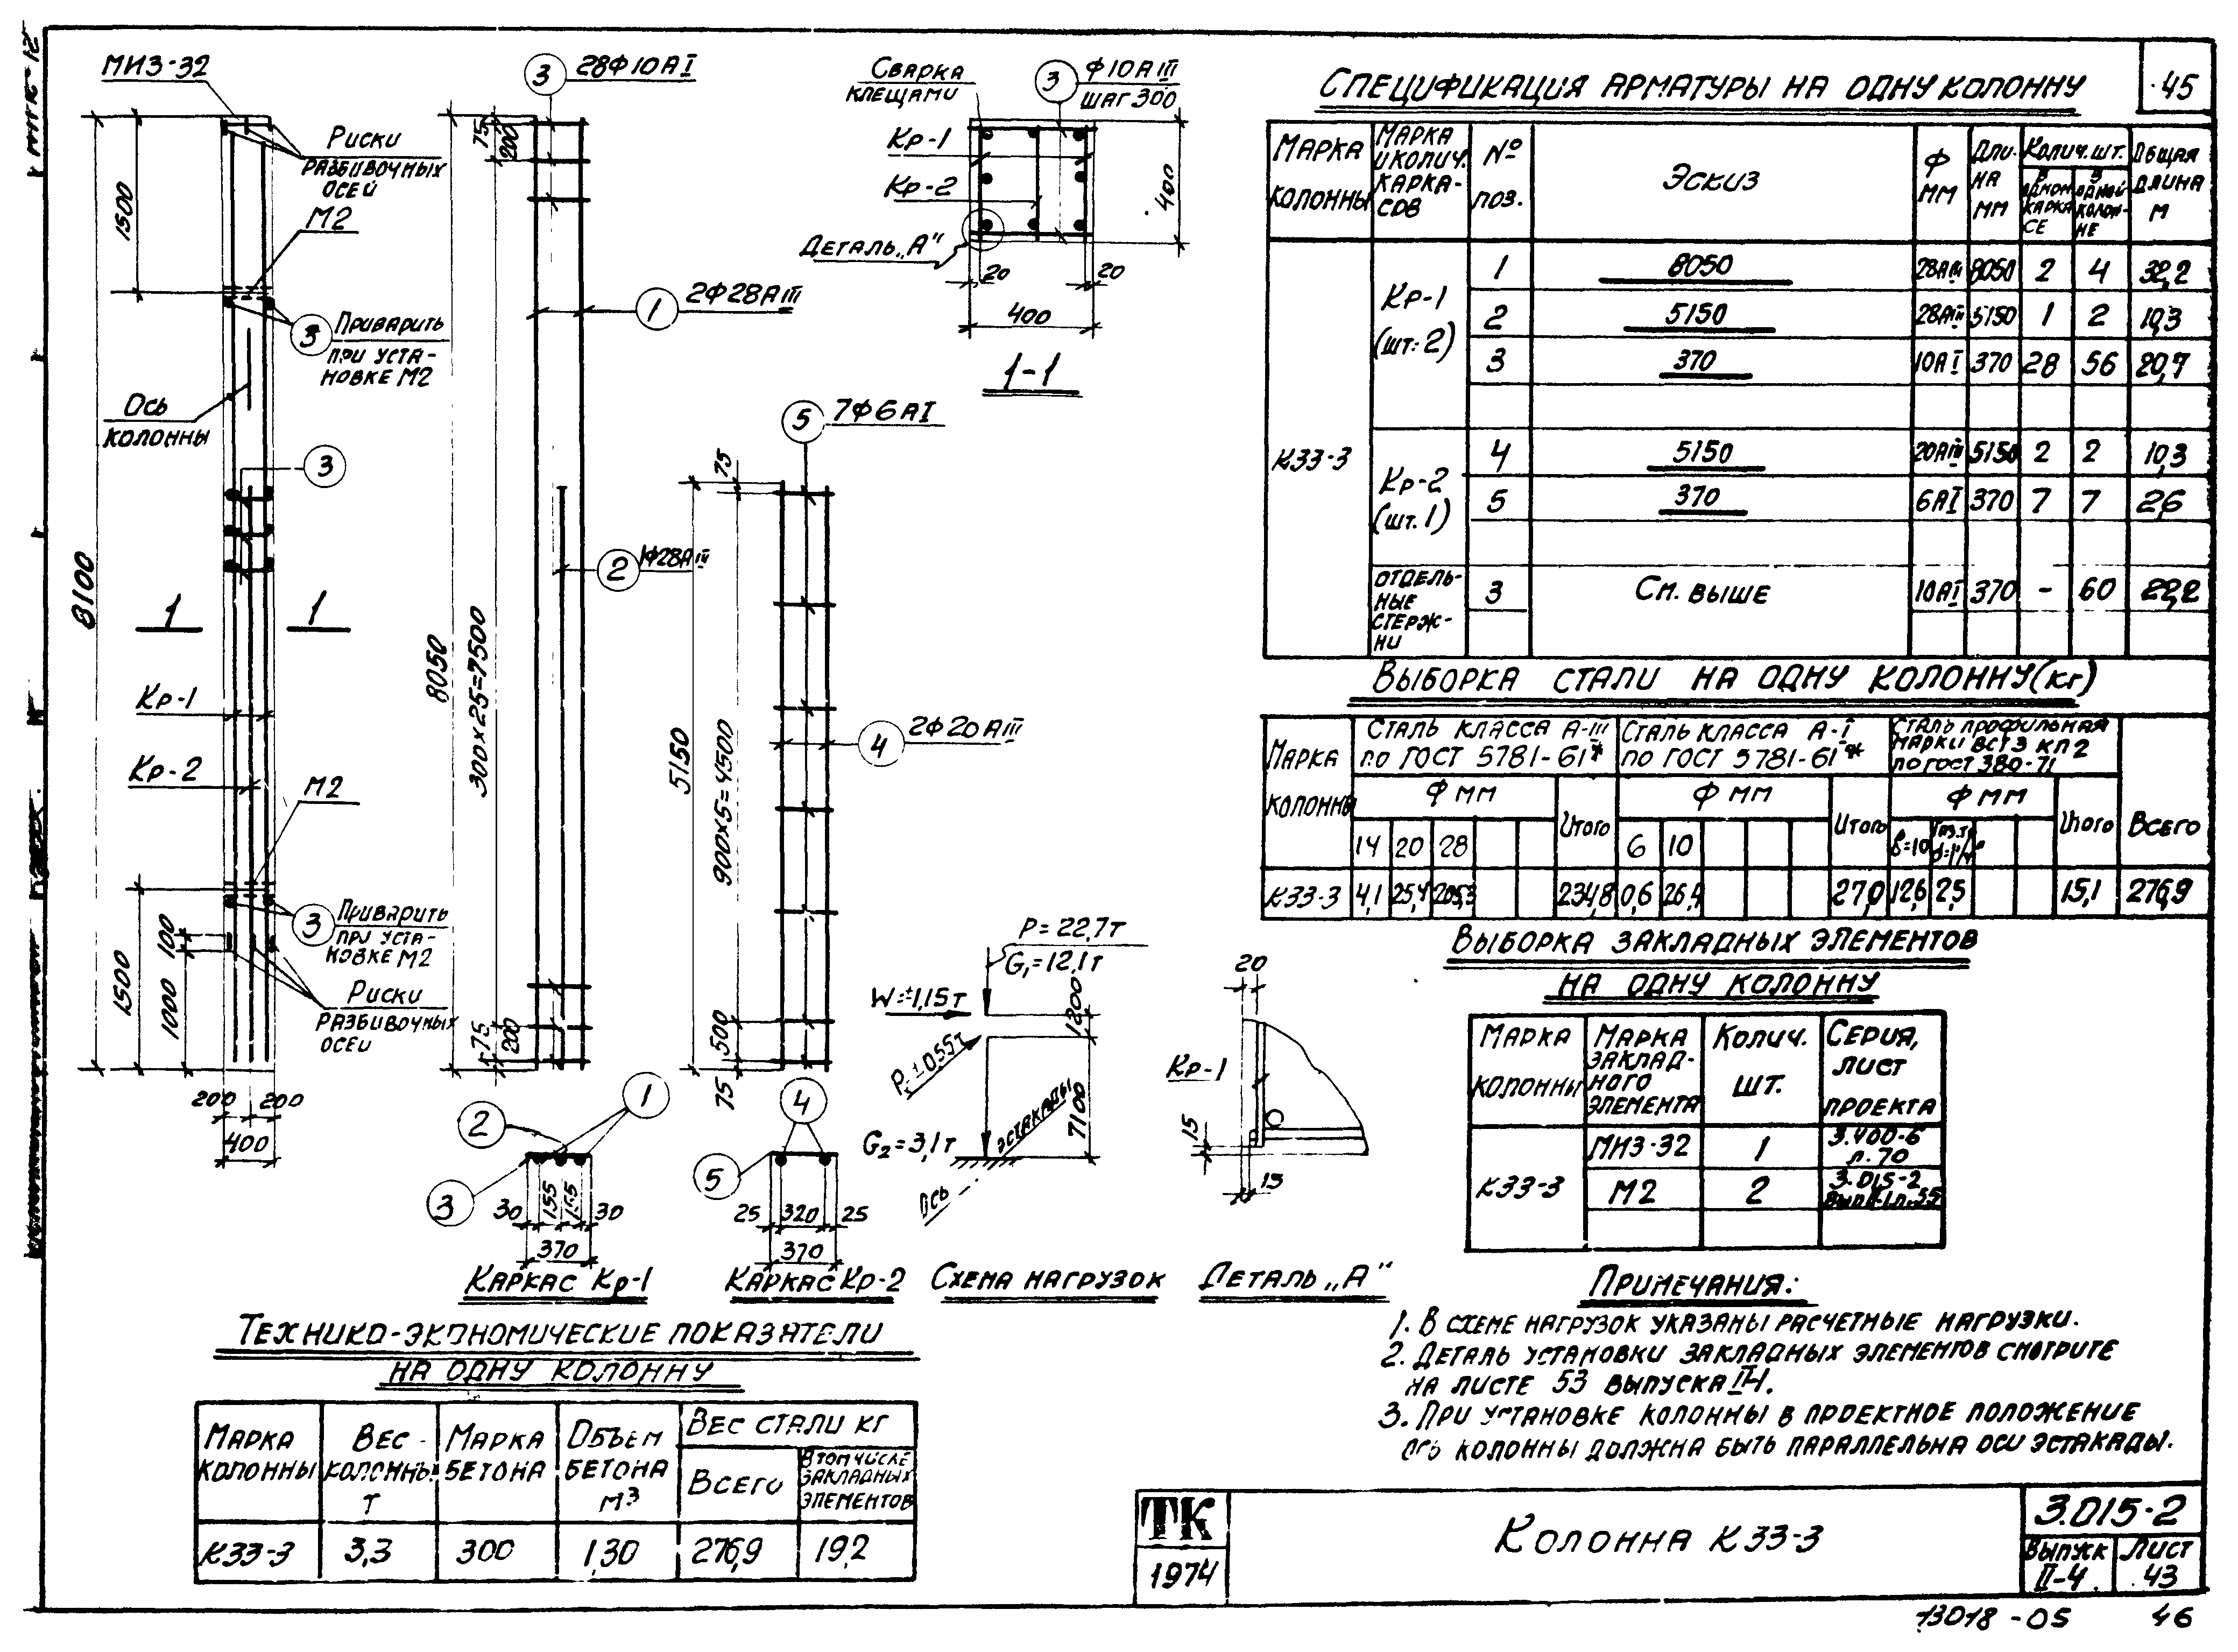 45
МИЗ-32
Риски
разбивочных
осей
М2
3
Приварить
при уста-
новке М2
Ось
колонны
3
1 1
Кр-1
Кр-2
М2
3
Приварить
при уста-
новке М2
Риски
разбивочных
осей
8100
1500
1500
1000
100
200 200
400
3 28Ф10АI
75
200
1 2Ф28АIII
2 1Ф28АIII
8050
300х25=7500
75
200
1
2
3
30 155 155 30
370
Каркас Кр-1
5 7Ф6АI
75
4 2Ф20АIII
5150
900х5=4500
500
75
4
5
25 320 25
370
Каркас Кр-2
Сварка
клещами
3 Ф10АIII
шаг 300
Кр-1
Кр-2
Деталь „А"
400
20 20
400
1-1
P=22,7т
G₁=12,1т
W=±1,15т
P=±0,55т
1200
7100
G₂=3,1т
эстакады
Ось
Схема нагрузок
20
Кр-1
15
15
Деталь „А"
Спецификация арматуры на одну колонну
Марка колонны Марка и колич. каркасов № поз. Эскиз Ф мм Длина мм Колич. шт. Общая длина м
В одном каркасе В одной колонне
К33-3
Кр-1 (шт. 2) 1 8050 28АIII 8050 2 4 32,2
2 5150 28АIII 5150 1 2 10,3
3 370 10АI 370 28 56 20,7
Кр-2 (шт. 1) 4 5150 20АIII 5150 2 2 10,3
5 370 6АI 370 7 7 2,6
Отдель-
ные
стерж-
ни 3 См. выше 10АI 370 - 60 22,2
Выборка стали на одну колонну (кг)
Марка колонны Сталь класса А-III по ГОСТ 5781-61* Сталь класса А-I по ГОСТ 5781-61* Сталь профильная марки ВСт3 кп2 по ГОСТ 380-71 Всего
Ф мм Итого Ф мм Итого Ф мм Итого
14 20 28 6 10 δ=10
К33-3 4,1 25,4 205,3 234,8 0,6 26,4 27,0 12,6 2,5 15,1 276,9
Выборка закладных элементов
на одну колонну
Марка колонны Марка закладного элемента Колич. шт. Серия, лист проекта
К33-3 МИЗ-32 1 3.400-6 л.70
М2 2 3.015-2
Примечания:
1. В схеме нагрузок указаны расчетные нагрузки.
2. Деталь установки закладных элементов смотрите
на листе 53 выпуска II-1.
3. При установке колонны в проектное положение
ось колонны должна быть параллельна оси эстакады.
Технико-экономические показатели
на одну колонну
Марка колонны Вес колонны т Марка бетона Объем бетона м³ Вес стали кг
Всего В том числе закладных элементов
К33-3 3,3 300 1,30 276,9 19,2
ТК
1974
Колонна К33-3
3.015-2
Выпуск II-4
Лист 43
13018-05 46